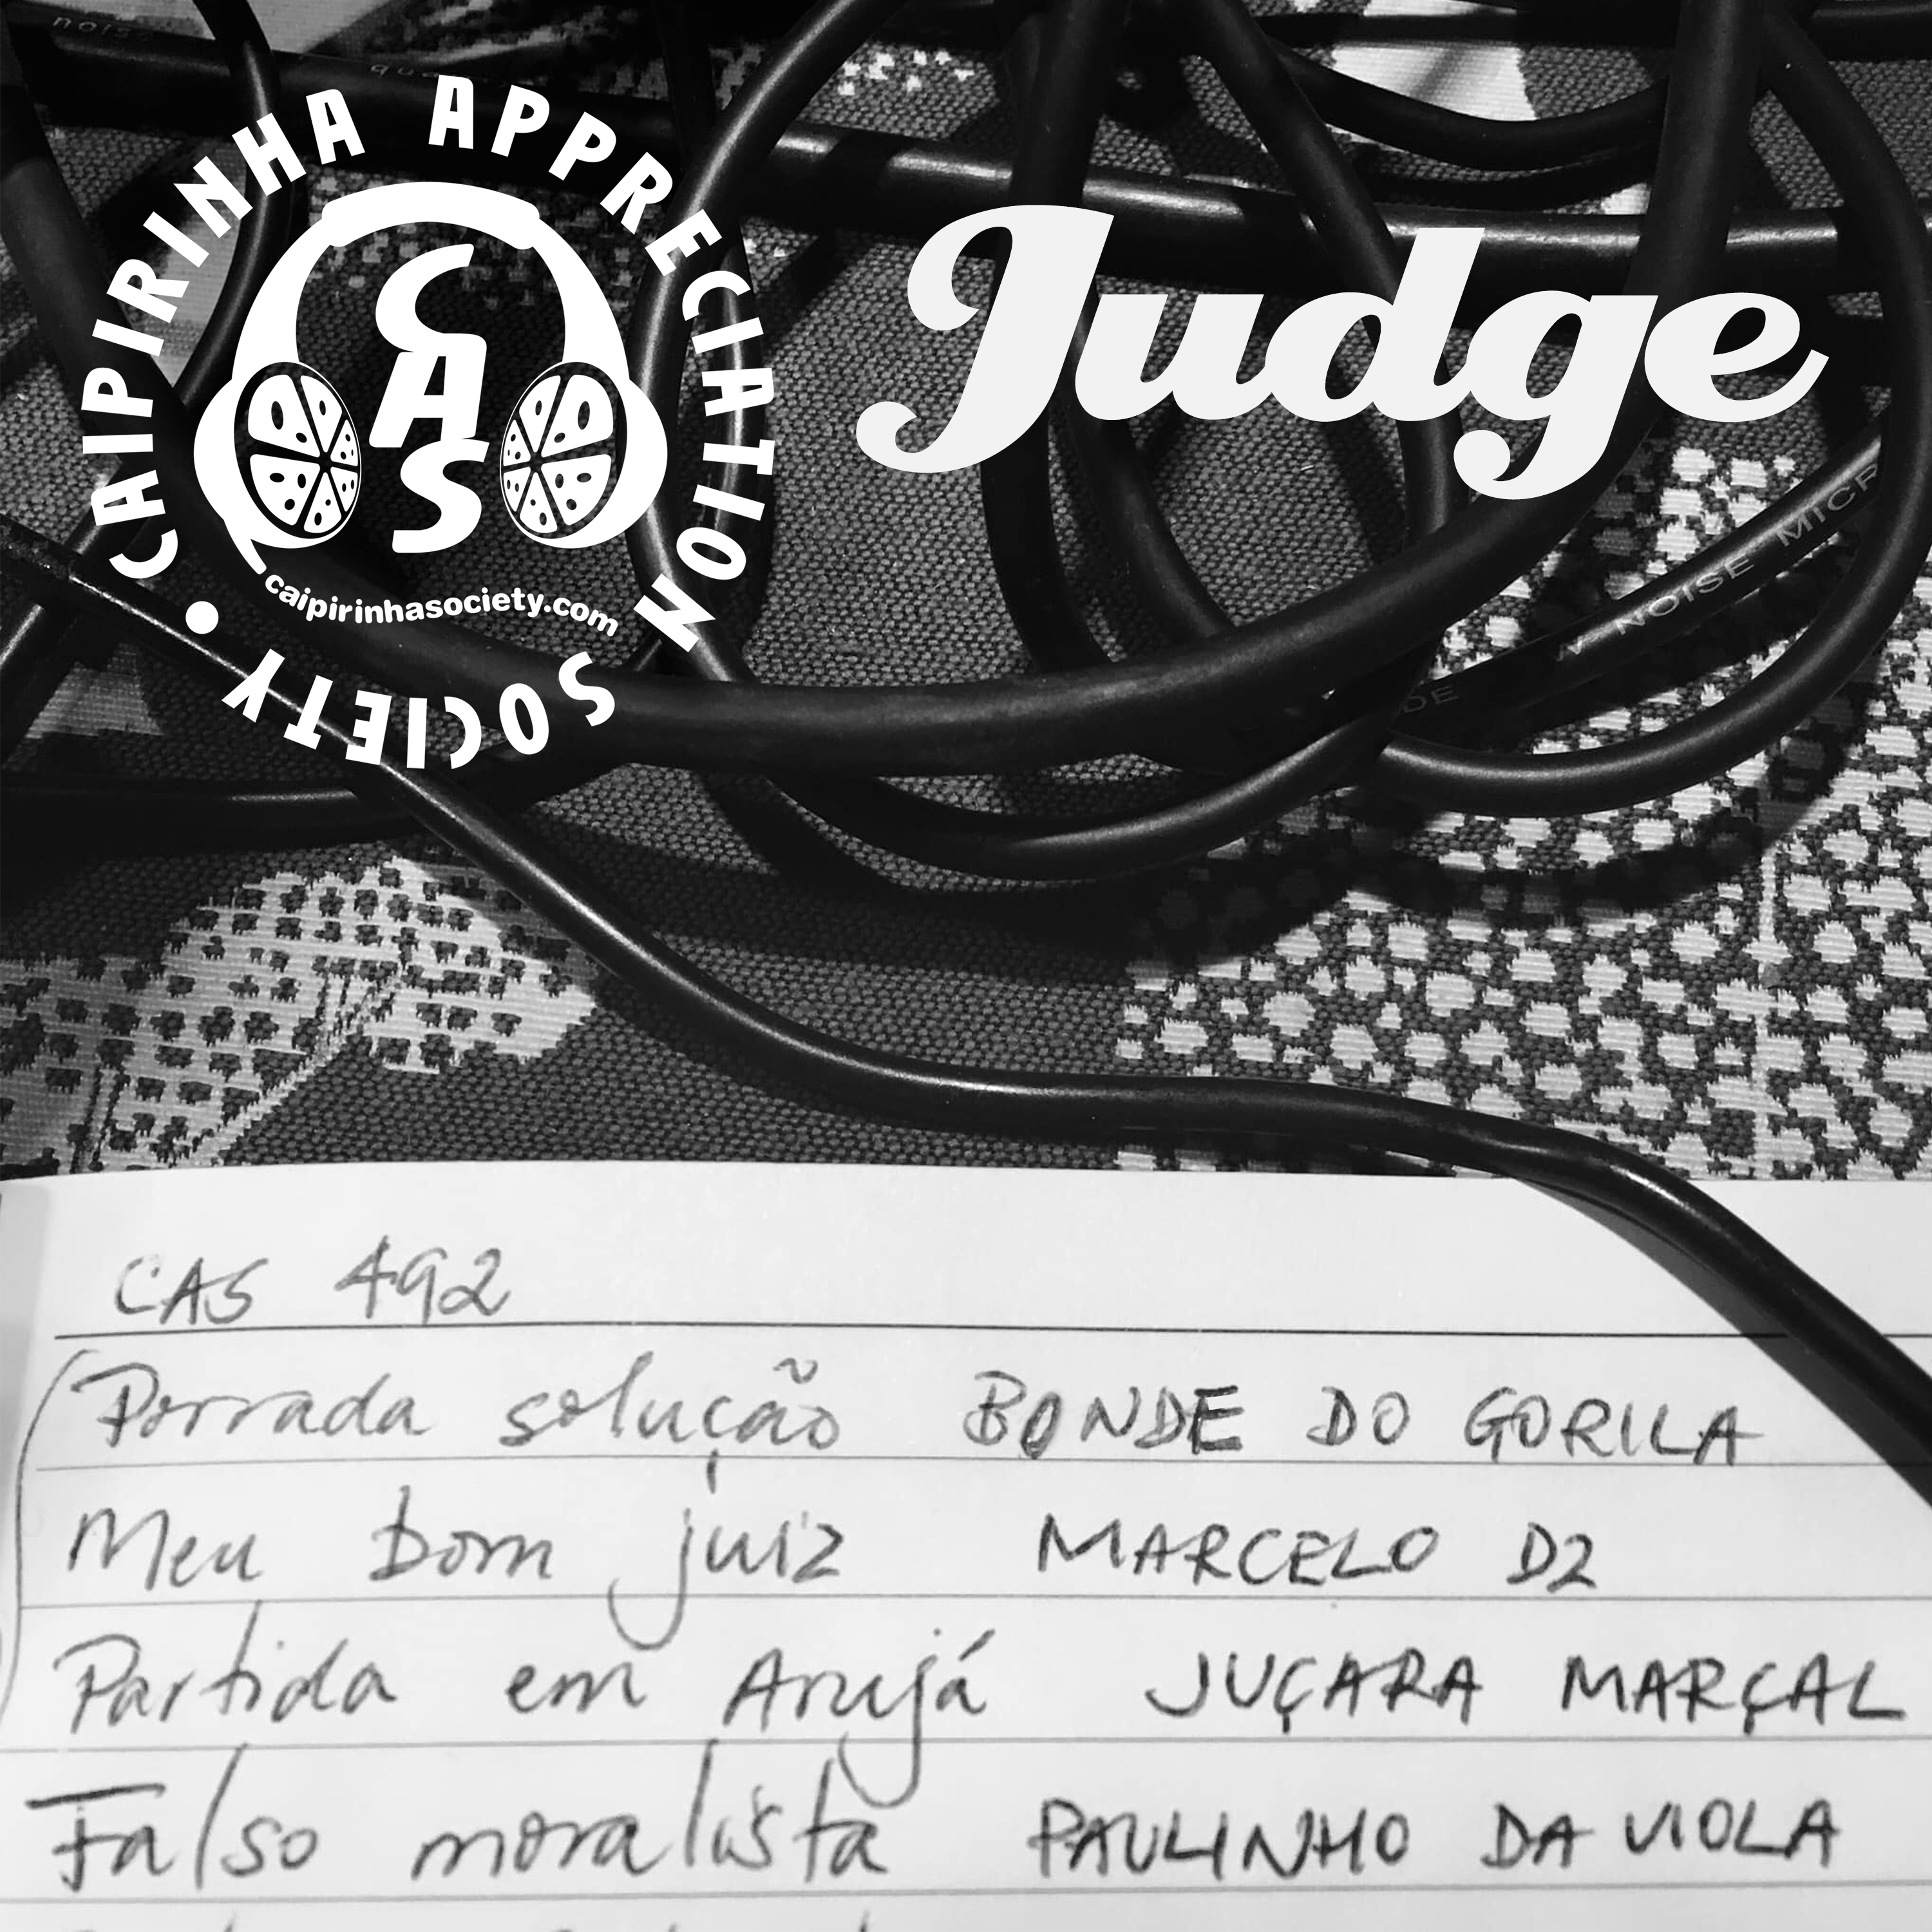 noise
CAIPIRINHA APPRECIATION SOCIETY
CAS
caipirinhasociety.com
Judge
NOISE MICR
DE
CAS 492
Porrada solução BONDE DO GORILA
Meu bom juiz MARCELO D2
Partida em Arujá JUÇARA MARÇAL
Falso moralista PAULINHO DA VIOLA